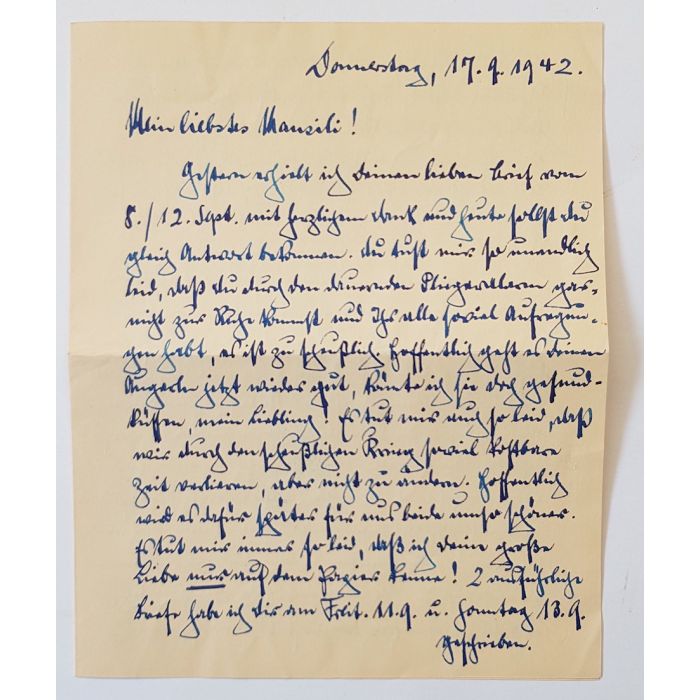 Donnerstag, 17.9.1942.
Mein liebstes Hanseli!
Gestern erhielt ich Deinen lieben Brief vom
8./12. Sept. mit herzlichem Dank und heute sollst Du
gleich Antwort bekommen. Du tust mir so unendlich
leid, daß Du durch den dauernden Fliegeralarm gar-
nicht zur Ruhe kommst und Ihr alle soviel Aufregun-
gen habt, es ist zu scheußlich. Hoffentlich geht es Deinen
Äugerln jetzt wieder gut, könnte ich sie doch gesund-
küssen, mein Liebling! Es tut mir auch so leid, daß
wir durch den scheußlichen Krieg soviel kostbare
Zeit verlieren, aber nicht zu ändern. Hoffentlich
wird es dafür später für uns beide umso schöner.
Es tut mir immer so leid, daß ich Deine große
Liebe nur auf dem Papier kenne! 2 ausführliche
Briefe habe ich Dir am Freit. 11.9. u. Sonntag 13.9.
geschrieben.